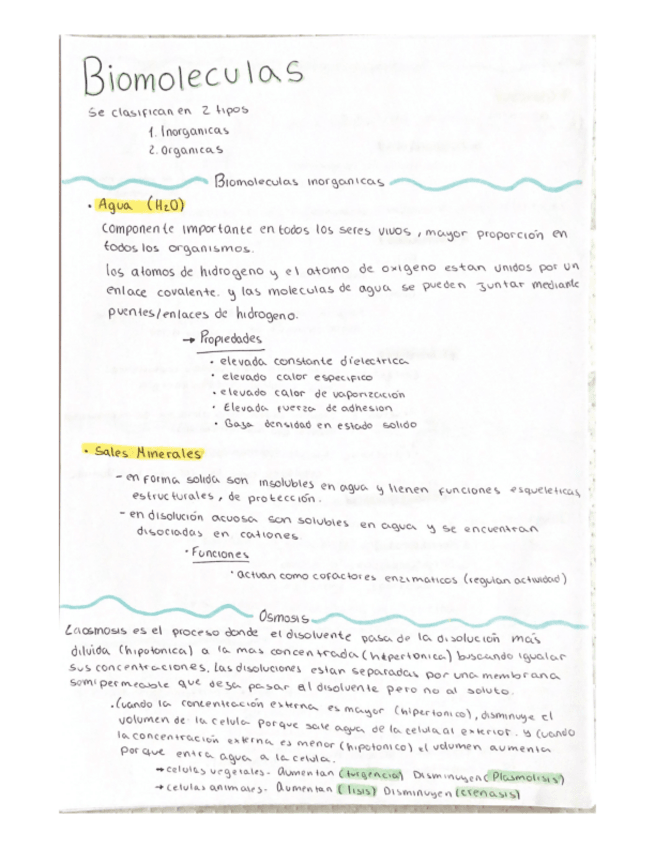 Biomoleculas
Se clasifican en 2 tipos
1. Inorganicas
2. Organicas
Biomoleculas inorganicas
• Agua (H₂O)
Componente importante en todos los seres vivos, mayor proporción en
todos los organismos.
los atomos de hidrogeno y el atomo de oxigeno estan unidos por un
enlace covalente. y las moleculas de agua se pueden juntar mediante
puentes/enlaces de hidrogeno.
→ Propiedades
• elevada constante dielectrica
• elevado calor especifico
• elevado calor de vaporización
• Elevada fuerza de adhesion
• Baja densidad en estado solido
• Sales Minerales
- en forma solida son insolubles en agua y tienen funciones esqueleticas,
estructurales, de protección.
- en disolución acuosa son solubles en agua y se encuentran
disociadas en cationes
• Funciones
• actuan como cofactores enzimaticos (regulan actividad)
Osmosis
La osmosis es el proceso donde el disolvente pasa de la disolución más
diluida (hipotonica) a la mas concentrada (hipertonica) buscando igualar
sus concentraciones. Las disoluciones estan separadas por una membrana
semipermeable que deja pasar al disolvente pero no al soluto.
• Cuando la concentración externa es mayor (hipertonico), disminuye el
volumen de la celula porque sale agua de la celula al exterior. y cuando
la concentración externa es menor (hipotonico) el volumen aumenta
porque entra agua a la celula.
→ celulas vegetales. Aumentan (turgencia) Disminuyen (Plasmolisis)
→ celulas animales. Aumentan (lisis) Disminuyen (crenasis)